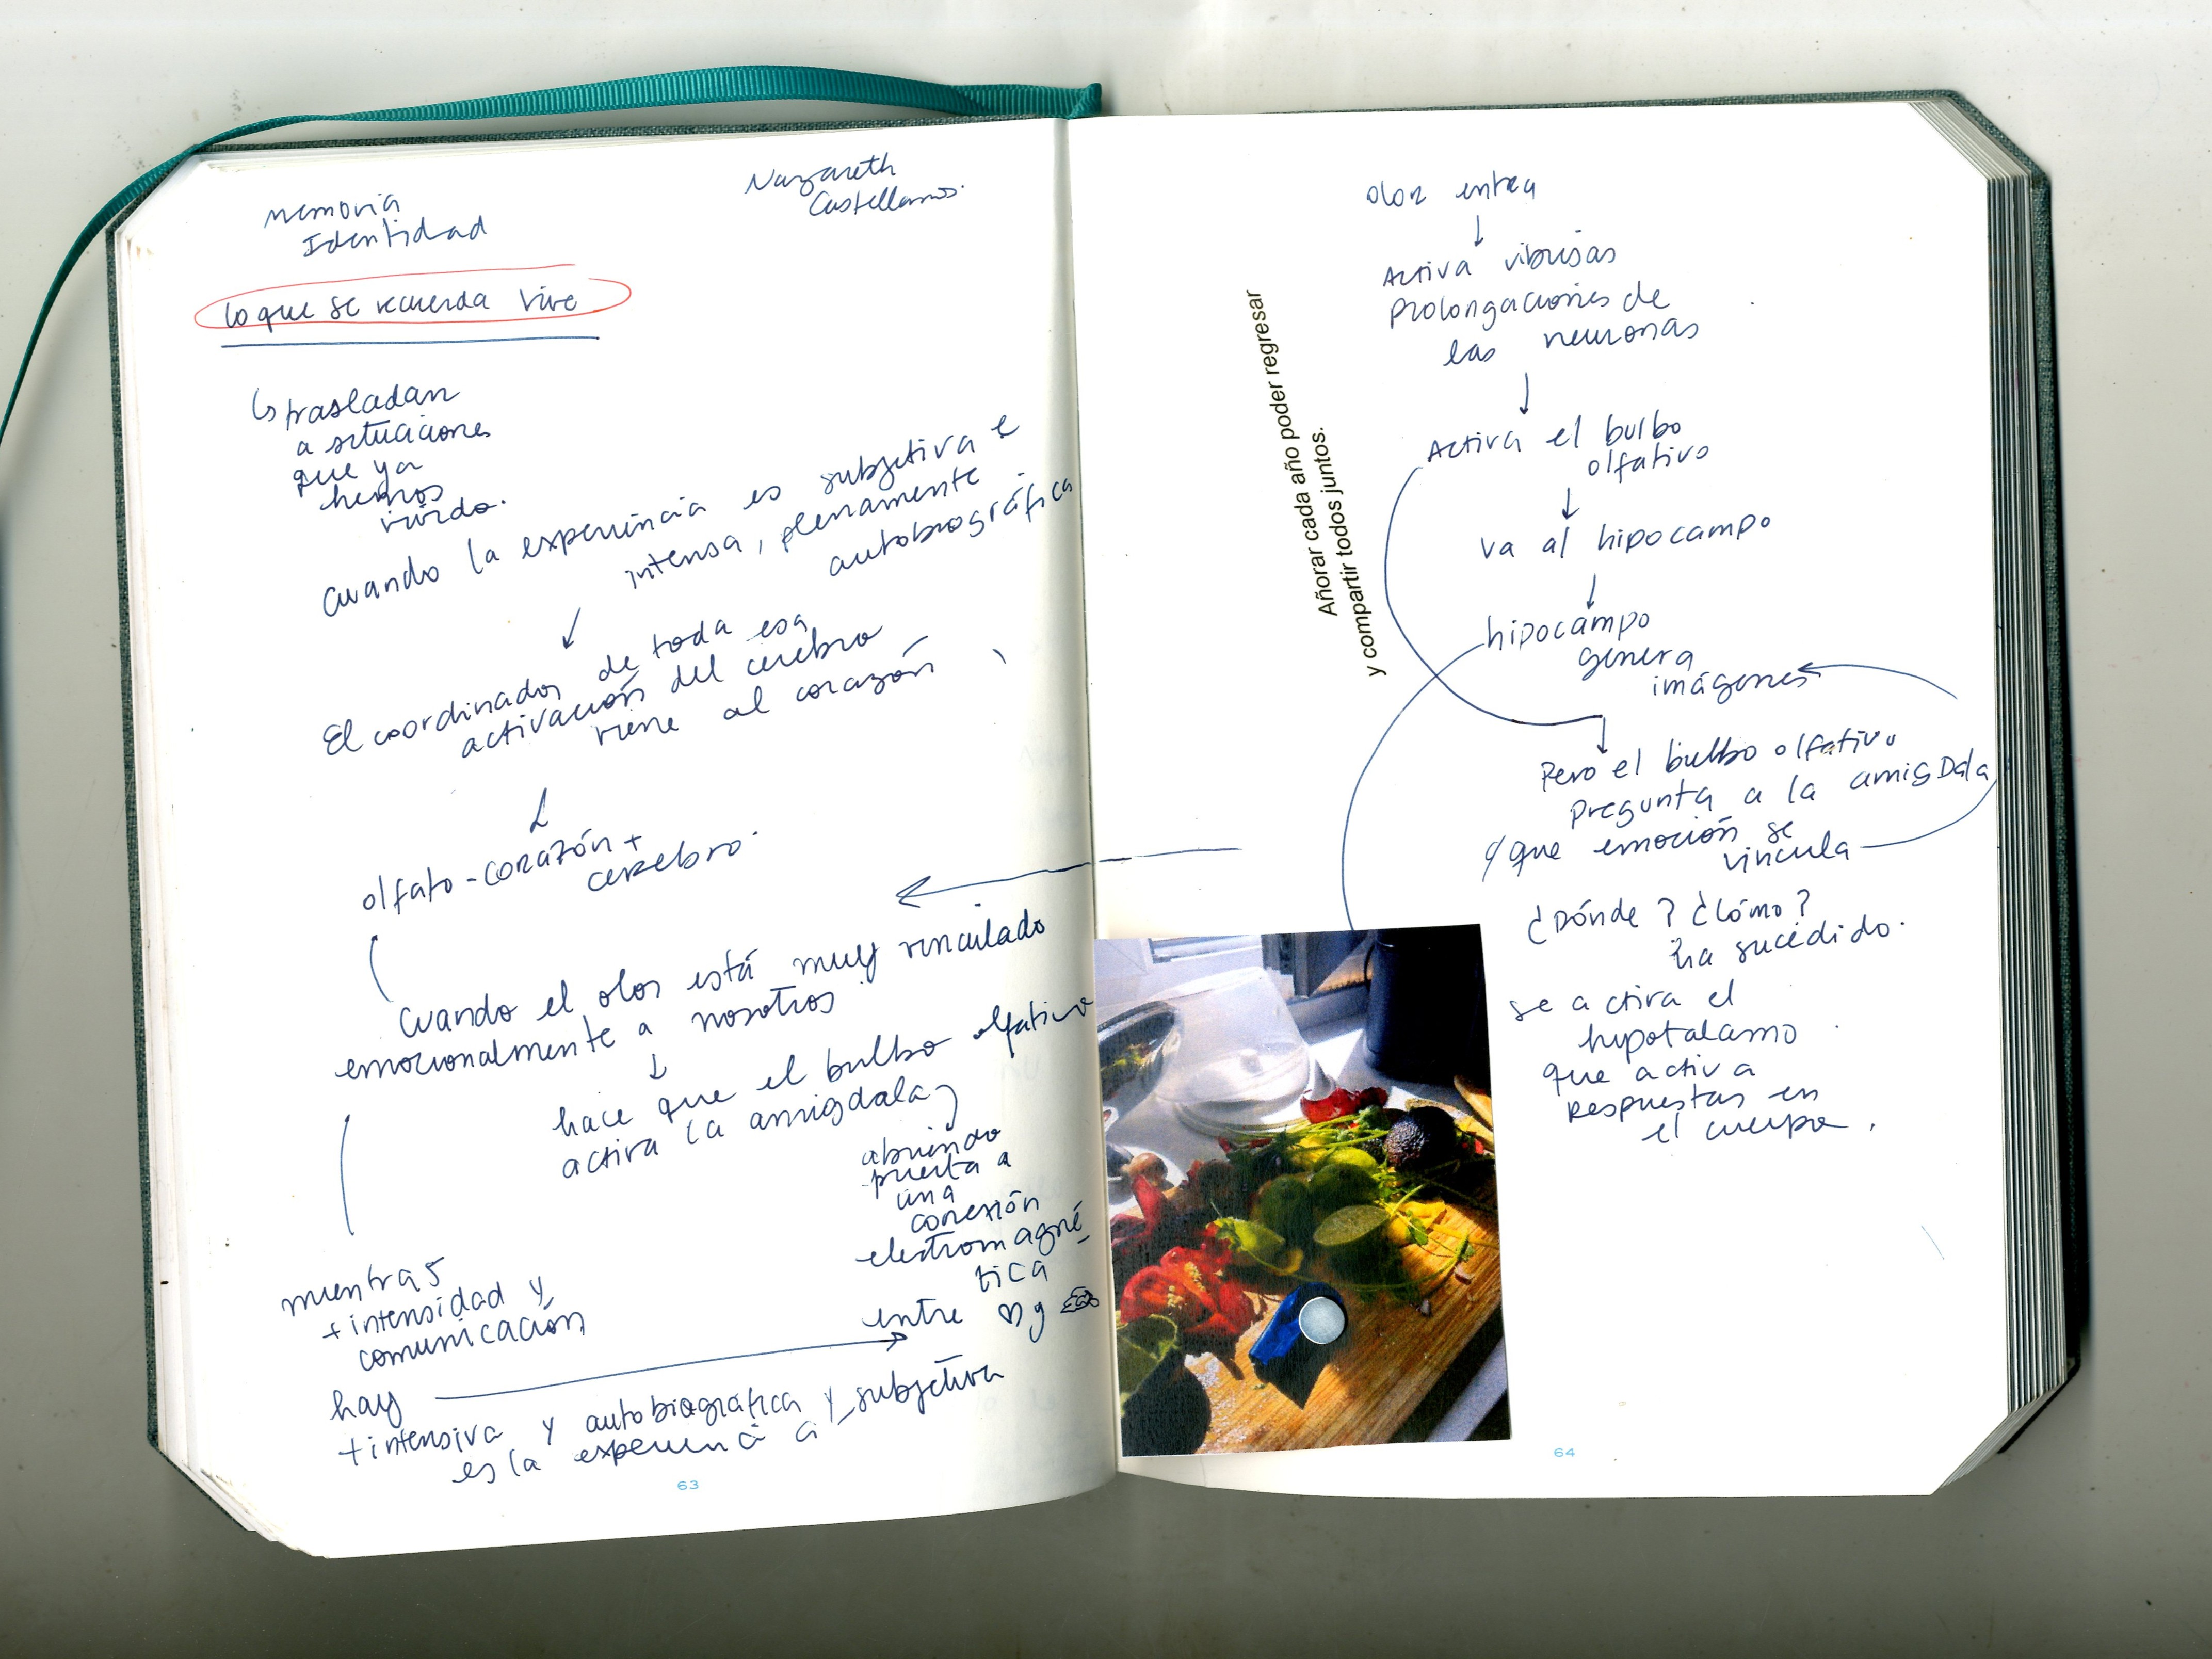 Memoria
Identidad
Nazareth
Castellanos.
lo que se recuerda vive
trasladan
a situaciones
que ya
hemos
vivido.
cuando la experiencia es subjetiva e
intensa, plenamente
autobiográfica
El coordinador de toda esa
activación del cerebro
viene al corazón
olfato - corazón +
cerebro.
Cuando el olor está muy vinculado
emocionalmente a nosotros
hace que el bulbo olfativo
activa la amigdala
abriendo
puerta a
una
conexión
electromagné
tica
entre ♡ y
mientras
+ intensidad y
comunicación
hay
+ intensiva y autobiográfica y subjetiva
es la experiencia
63
olor entra
↓
Activa vibrisas
Prolongaciones de
las neuronas
↓
Activa el bulbo
olfativo
↓
va al hipocampo
↓
hipocampo
genera
imágenes
Pero el bulbo olfativo
pregunta a la amigDala
que emoción se
vincula
¿Dónde? ¿Cómo?
ha sucedido.
se activa el
hypotalamo
que activa
respuestas en
el cuerpo.
Añorar cada año poder regresar
y compartir todos juntos.
64